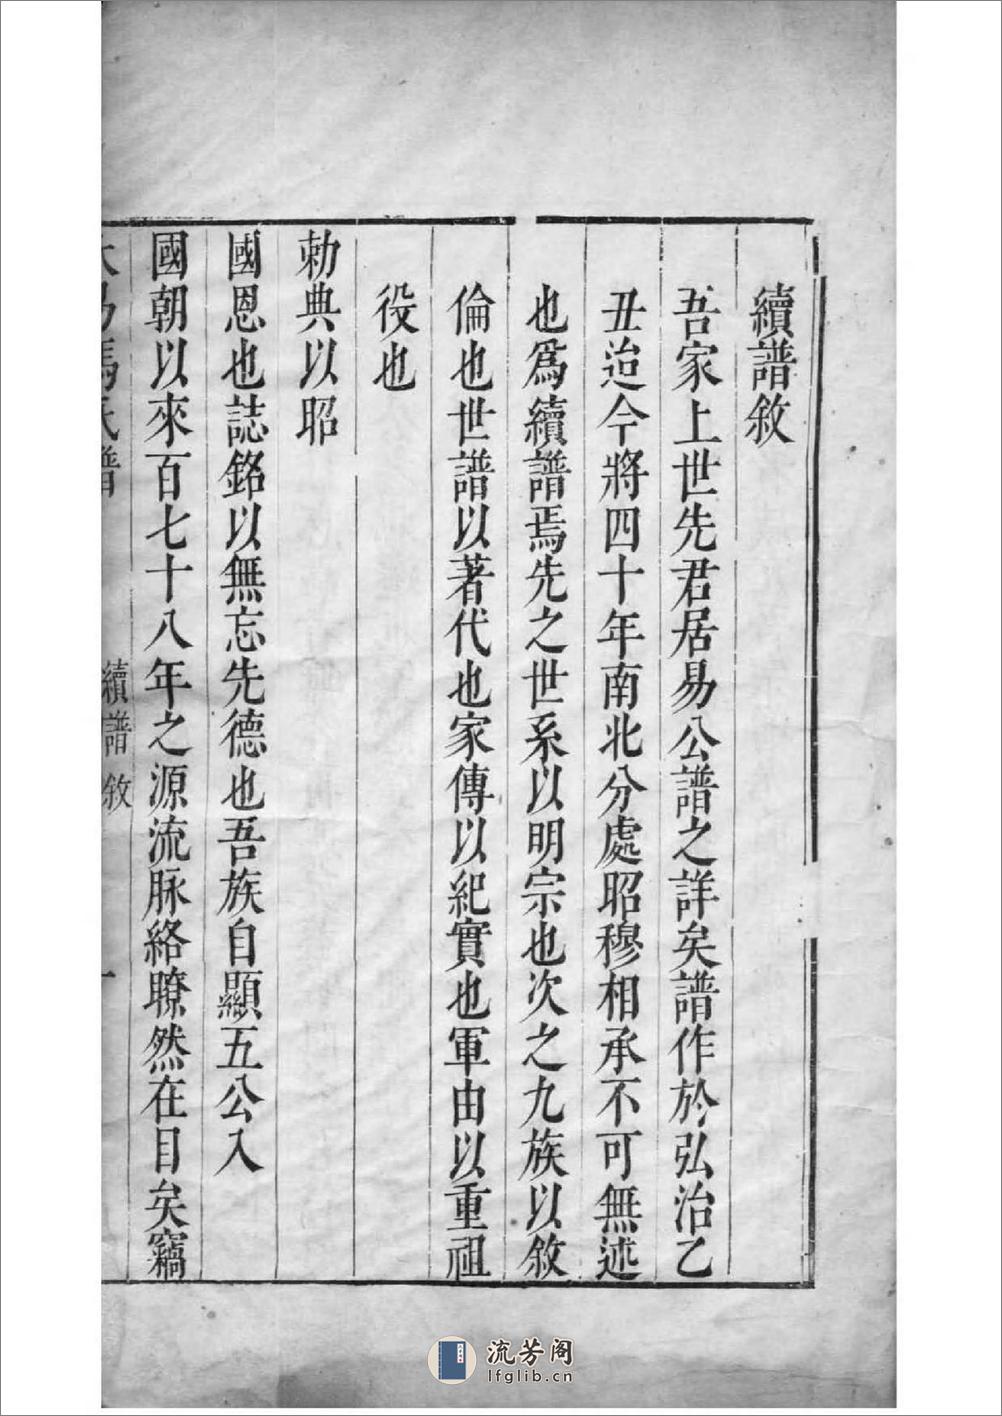 續譜敘
吾家上世先君居易公譜之詳矣譜作於弘治乙
丑迨今將四十年南北分處昭穆相承不可無述
也爲續譜焉先之世系以明宗也次之九族以敘
倫也世譜以著代也家傳以紀實也軍由以重祖
役也
勅典以昭
國恩也誌銘以無忘先德也吾族自顯五公入
國朝以來百七十八年之源流脉絡瞭然在目矣竊
馬氏譜
續譜敘
一
流芳阁
lfglib.cn